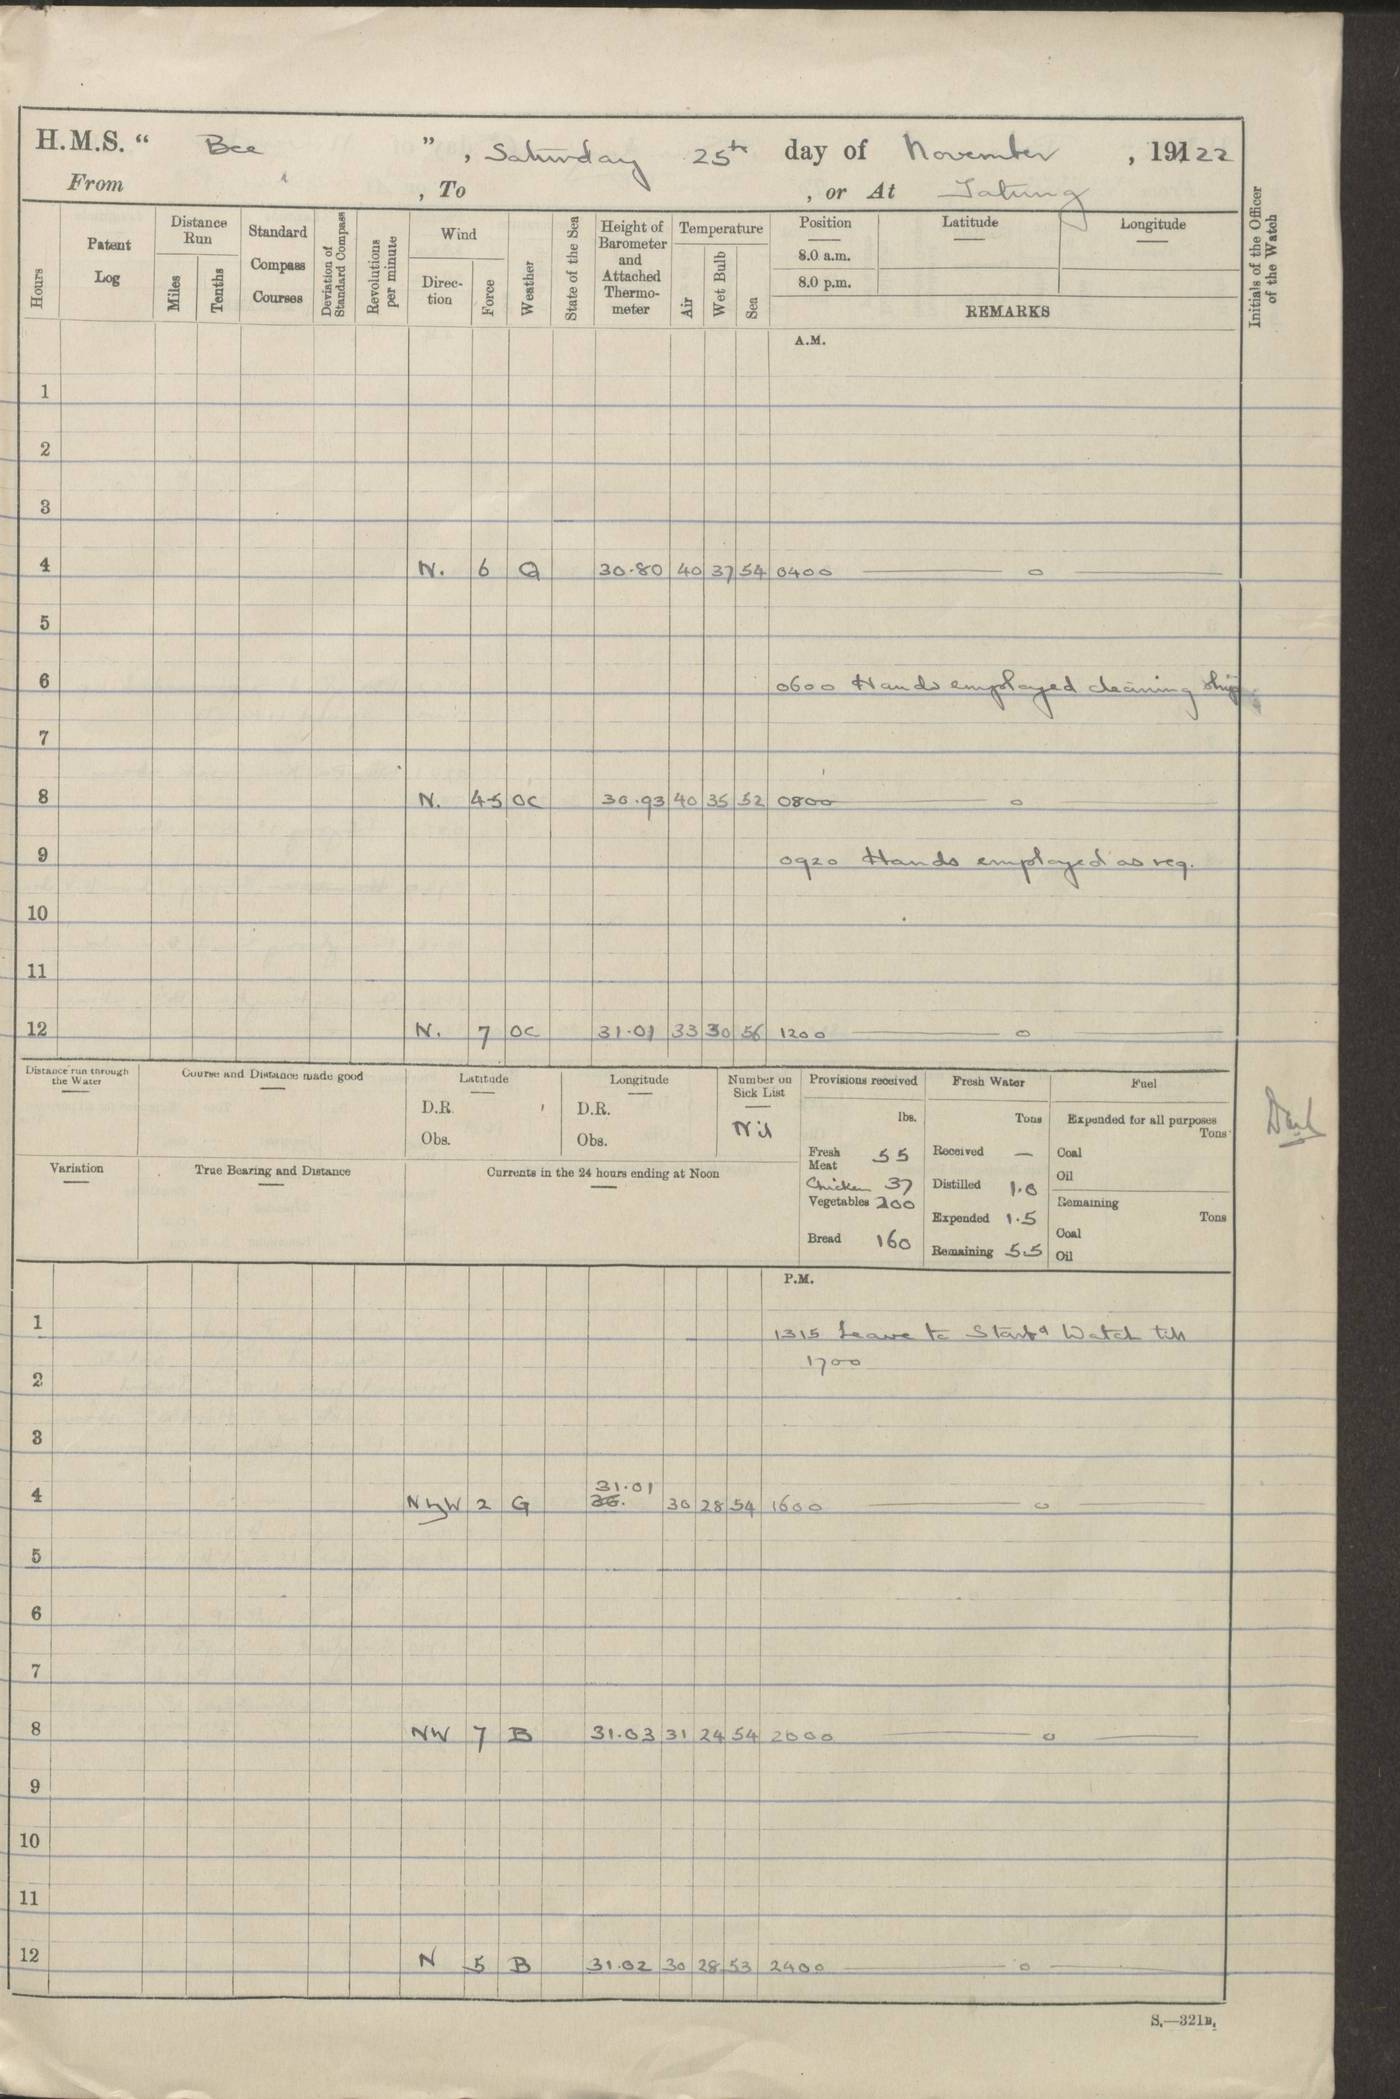 H.M.S. “ Bee ”, Saturday 25th day of November, 1922
From , To , or At Tatung
Hours
Patent Log
Distance Run
Miles
Tenths
Standard Compass Courses
Deviation of Standard Compass
Revolutions per minute
Wind
Direction
Force
Weather
State of the Sea
Height of Barometer and Attached Thermometer
Temperature
Air
Wet Bulb
Sea
Position
8.0 a.m.
8.0 p.m.
Latitude
Longitude
REMARKS
Initials of the Officer of the Watch
A.M.
1
2
3
4 N. 6 Q 30.80 40 37 54 0400 —— o ——
5
6 0600 Hands employed cleaning ship
7
8 N. 4-5 OC 30.93 40 35 52 0800 —— o ——
9 0920 Hands employed as req.
10
11
12 N. 7 OC 31.01 33 30 56 1200 —— o ——
Distance run through the Water
Course and Distance made good
Latitude
D.R.
Obs.
Longitude
D.R.
Obs.
Number on Sick List
Nil
Variation
True Bearing and Distance
Currents in the 24 hours ending at Noon
Provisions received
lbs.
Fresh Meat 55
Chicken 37
Vegetables 200
Bread 160
Fresh Water
Tons
Received —
Distilled 1.0
Expended 1.5
Remaining 5.5
Fuel
Expended for all purposes
Tons
Coal
Oil
Remaining
Tons
Coal
Oil
P.M.
1 1315 Leave to Starbd Watch till
1700
2
3
4 NbyW 2 G 31.01 30 28 54 1600 —— o ——
5
6
7
8 NW 7 B 31.03 31 24 54 2000 —— o ——
9
10
11
12 N 5 B 31.02 30 28 53 2400 —— o ——
S.—321B.